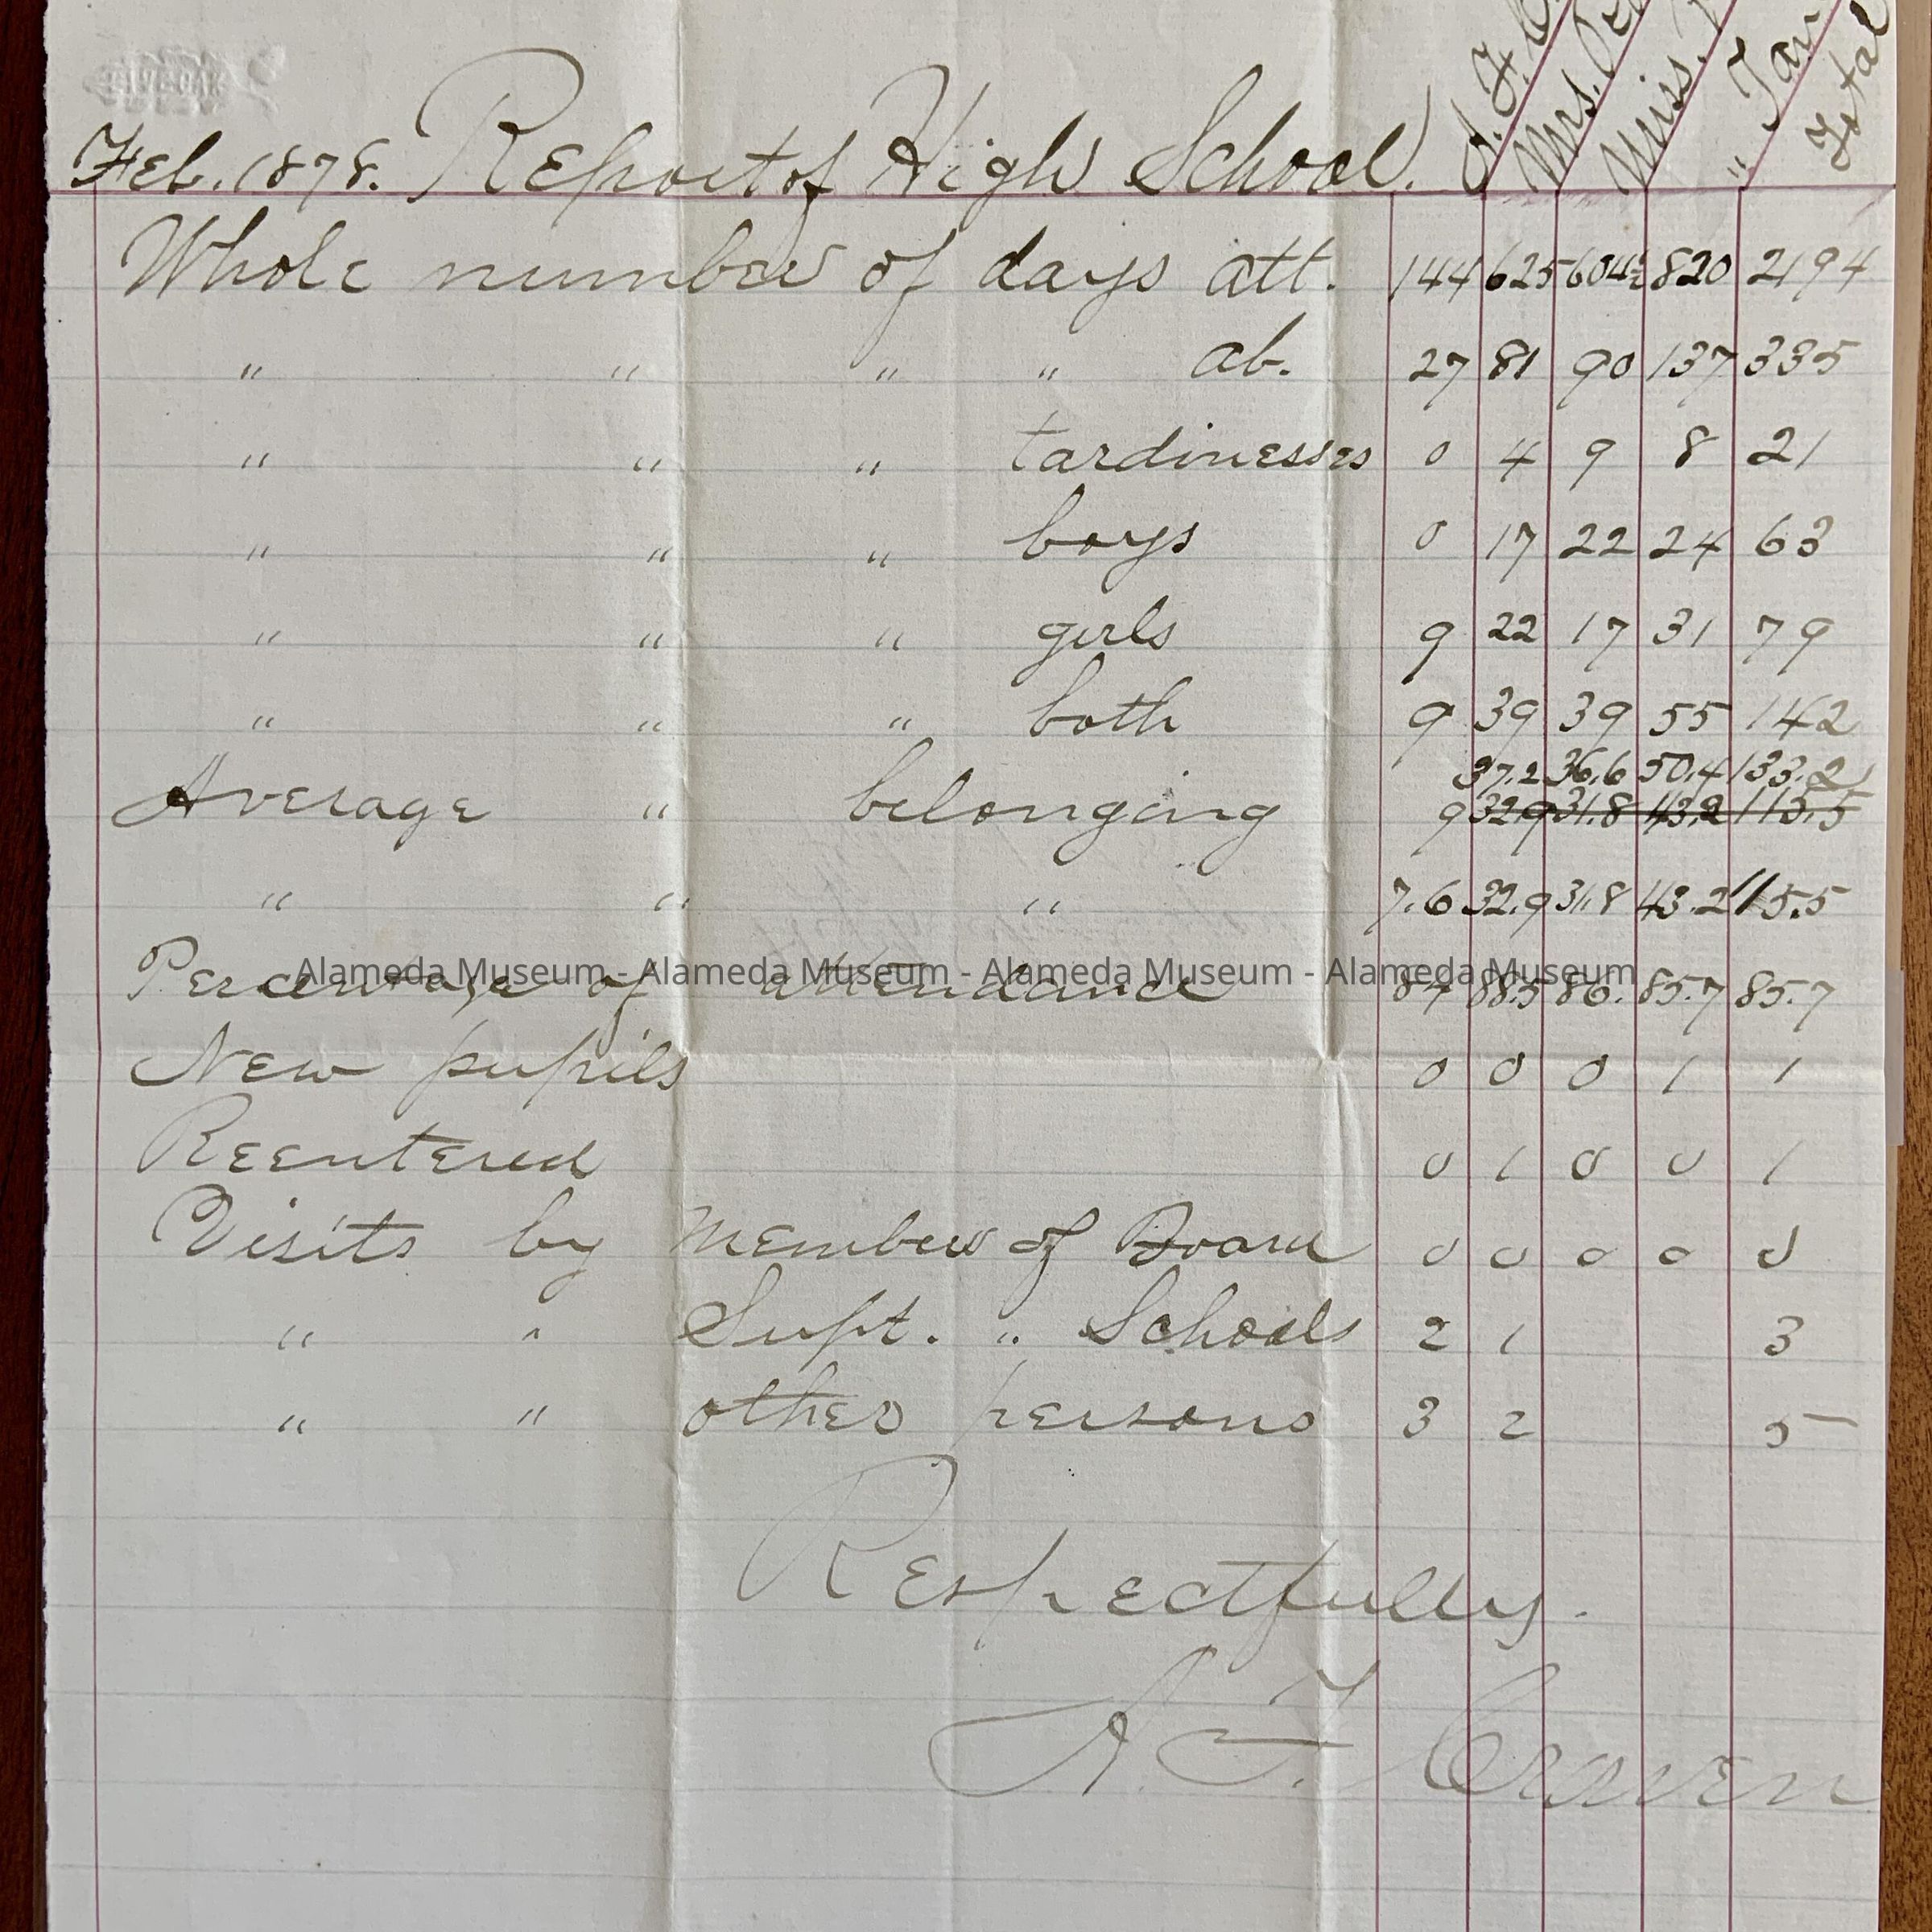 Feb. 1878. Report of High School. A. F. Mrs. Miss. " Total
Whole number of days att. 144 625 604½ 820 2194
" " " " ab. 27 81 90 137 335
" " " tardinesses 0 4 9 8 21
" " " boys 0 17 22 24 63
" " " girls 9 22 17 31 79
" " " both 9 39 39 55 142
37.2 36.6 50.4 133.2
Average " belonging 9 32.9 31.8 43.2 115.5
" " " 7.6 32.9 31.8 43.2 115.5
Alameda Museum - Alameda Museum - Alameda Museum - Alameda Museum
Percentage of attendance 84 88.5 86. 85.7 85.7
New pupils 0 0 0 1 1
Reentered 0 1 0 0 1
Visits by Members of Board 0 0 0 0 0
" " Supt. " Schools 2 1 3
" " other persons 3 2 5
Respectfully.
A. F. Craven